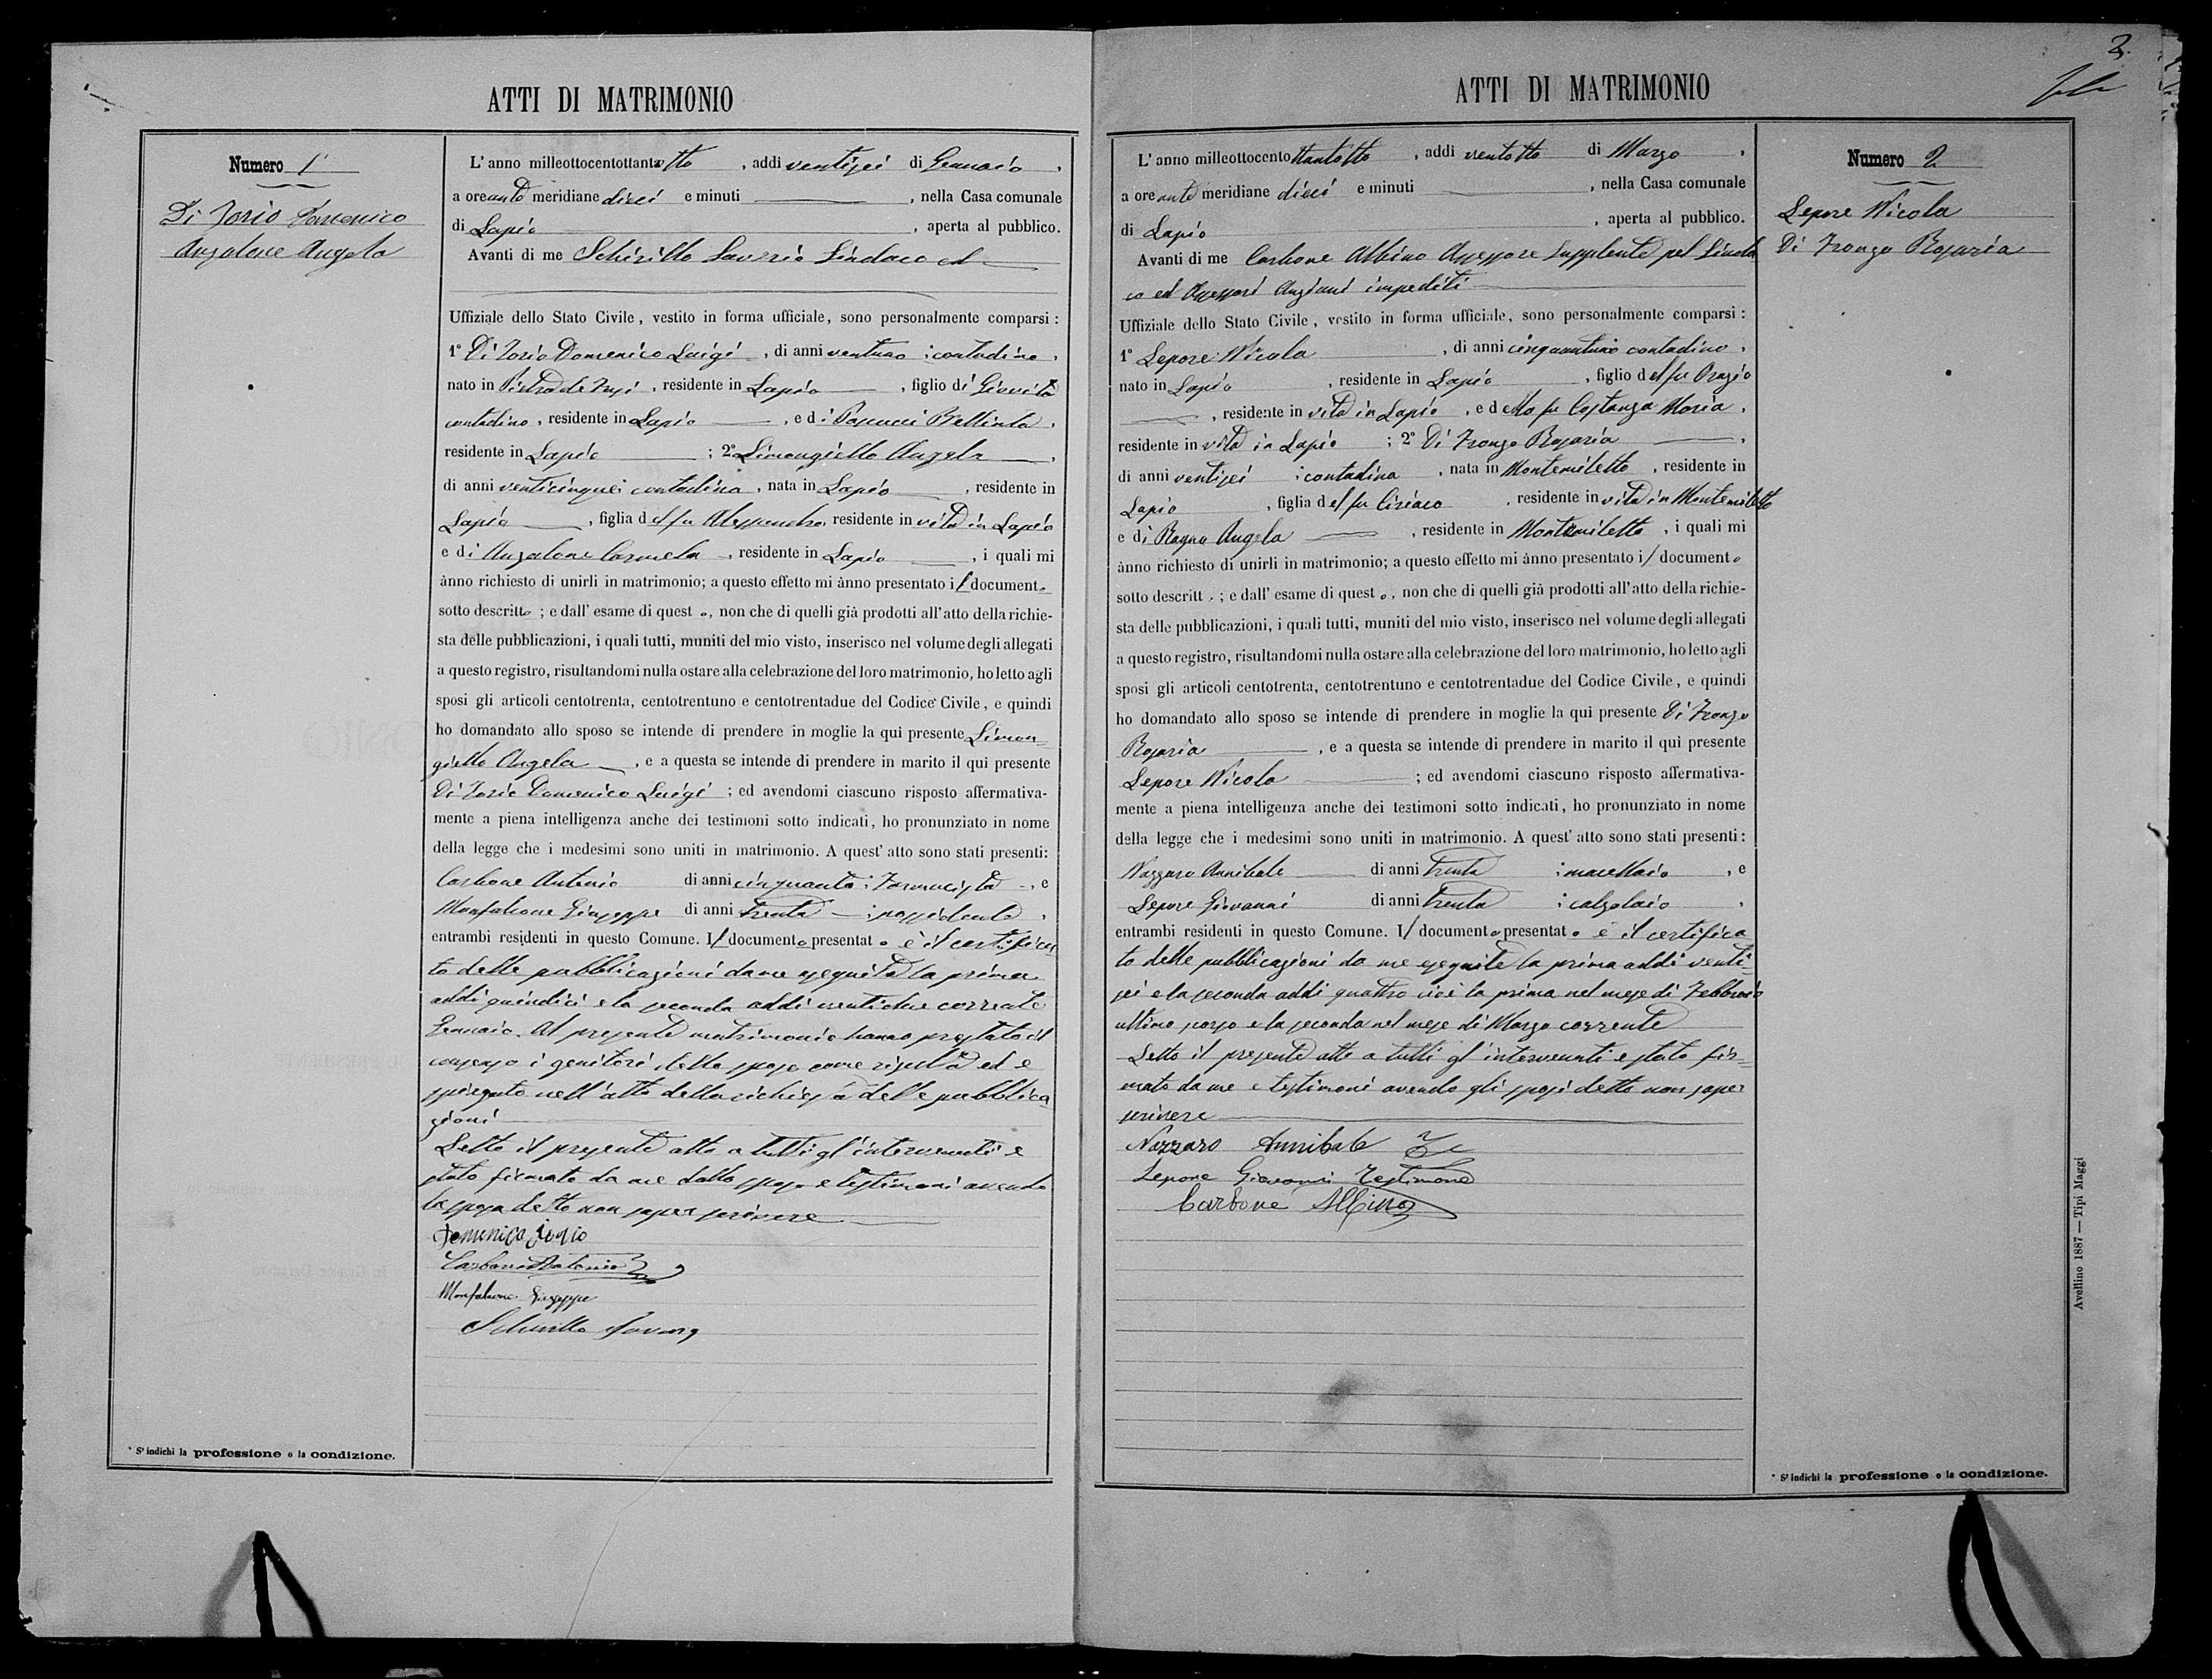 ATTI DI MATRIMONIO
Numero 1
Di Iorio Domenico
Angalone Angela
L'anno milleottocentottantotto, addì ventisei di Gennaio,
a ore ante meridiane dieci e minuti , nella Casa comunale
di Lapio , aperta al pubblico.
Avanti di me Schirillo Saverio Sindaco ed
Uffiziale dello Stato Civile, vestito in forma ufficiale, sono personalmente comparsi:
1º Di Iorio Domenico Luigi, di anni ventuno contadino,
nato in Pietra de Fusi, residente in Lapio, figlio di Giovita
contadino, residente in Lapio, e di Pascucci Bellinda,
residente in Lapio; 2º Simongiello Angela,
di anni venticinque contadina, nata in Lapio, residente in
Lapio, figlia del fu Alessandro, residente in vita in Lapio
e di Angalone Carmela, residente in Lapio, i quali mi
ànno richiesto di unirli in matrimonio; a questo effetto mi ànno presentato il documento
sotto descritto; e dall' esame di questo, non che di quelli già prodotti all'atto della richie-
sta delle pubblicazioni, i quali tutti, muniti del mio visto, inserisco nel volume degli allegati
a questo registro, risultandomi nulla ostare alla celebrazione del loro matrimonio, ho letto agli
sposi gli articoli centotrenta, centotrentuno e centotrentadue del Codice Civile, e quindi
ho domandato allo sposo se intende di prendere in moglie la qui presente Simon-
giello Angela, e a questa se intende di prendere in marito il qui presente
Di Iorio Domenico Luigi; ed avendomi ciascuno risposto affermativa-
mente a piena intelligenza anche dei testimoni sotto indicati, ho pronunziato in nome
della legge che i medesimi sono uniti in matrimonio. A quest' atto sono stati presenti:
Carbone Antonio di anni cinquanta Farmacista, e
Monfalcone Giuseppe di anni trenta possidente,
entrambi residenti in questo Comune. Il documento presentato è il certifica
to delle pubblicazioni da me eseguite la prima
addì quindici e la seconda addì ventidue corrente
Gennaio. Al presente matrimonio hanno prestato il
consenso i genitori dello sposo come risulta ed è
spiegato nell'atto della richiesta delle pubblica
zioni
Letto il presente atto a tutti gl'intervenuti è
stato firmato da me dallo sposo e testimoni avendo
la sposa detto non saper scrivere
Domenico Iorio
Carbone Antonio
Monfalcone Giuseppe
Schirillo Saverio
* Si indichi la professione o la condizione.
2.
ATTI DI MATRIMONIO
Numero 2
Lepore Nicola
Di Fronzo Rosaria
L'anno milleottocentottantotto, addì ventotto di Marzo,
a ore ante meridiane dieci e minuti , nella Casa comunale
di Lapio , aperta al pubblico.
Avanti di me Carbone Albino Assessore Supplente pel Sinda
co ed Assessori Anziani impediti
Uffiziale dello Stato Civile, vestito in forma ufficiale, sono personalmente comparsi:
1º Lepore Nicola, di anni cinquantuno contadino,
nato in Lapio, residente in Lapio, figlio del fu Orazio
, residente in vita in Lapio, e della fu Costanza Maria,
residente in vita in Lapio; 2º Di Fronzo Rosaria,
di anni ventisei contadina, nata in Montemiletto, residente in
Lapio, figlia del fu Ciriaco, residente in vita in Montemiletto
e di Ragno Angela, residente in Montemiletto, i quali mi
ànno richiesto di unirli in matrimonio; a questo effetto mi ànno presentato il documento
sotto descritt.; e dall' esame di questo, non che di quelli già prodotti all'atto della richie-
sta delle pubblicazioni, i quali tutti, muniti del mio visto, inserisco nel volume degli allegati
a questo registro, risultandomi nulla ostare alla celebrazione del loro matrimonio, ho letto agli
sposi gli articoli centotrenta, centotrentuno e centotrentadue del Codice Civile, e quindi
ho domandato allo sposo se intende di prendere in moglie la qui presente Di Fronzo
Rosaria, e a questa se intende di prendere in marito il qui presente
Lepore Nicola; ed avendomi ciascuno risposto affermativa-
mente a piena intelligenza anche dei testimoni sotto indicati, ho pronunziato in nome
della legge che i medesimi sono uniti in matrimonio. A quest' atto sono stati presenti:
Nazzaro Annibale di anni trenta macellaio, e
Lepore Giovanni di anni trenta calzolaio,
entrambi residenti in questo Comune. Il documento presentato è il certifica
to delle pubblicazioni da me eseguite la prima addì venti-
sei e la seconda addì quattro cioè la prima nel mese di Febbraio
ultimo scorso e la seconda nel mese di Marzo corrente
Letto il presente atto a tutti gl'intervenuti è stato fir-
mato da me e testimoni avendo gli sposi detto non saper
scrivere
Nazzaro Annibale
Lepore Giovanni Testimone
Carbone Albino
* Si indichi la professione o la condizione.
Avellino 1887 — Tipi Maggi